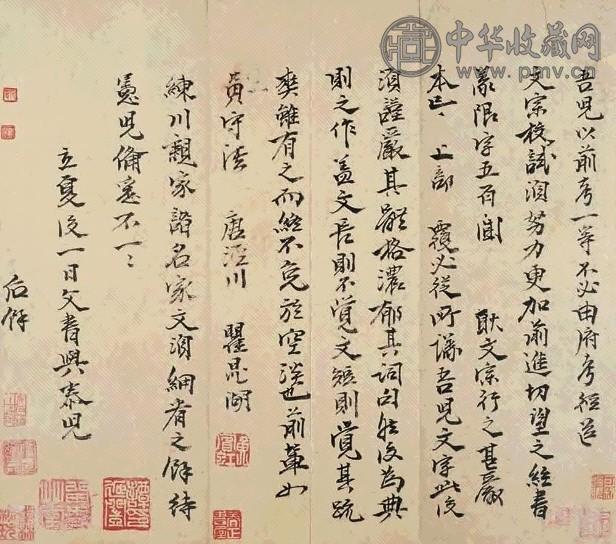 中华收藏网
www.pmv.cn
吾兒以前考一等不必由府考經送
文宗校試須努力更加前進切望之經書
義限字五百 耿文宗行之甚嚴
本已上部 覆必從所議吾兒文字此後
須謹嚴其體格濃郁其詞句然後為典
則之作盖文長則不覺文短則覺其疏
爽雖有之而終不免於空淡也前輩如
黄守法 唐涇川 瞿昆湖
練川親家諸名家文須細看之餘待
憲兒備悉不一々
立夏後一日父書與泰兒